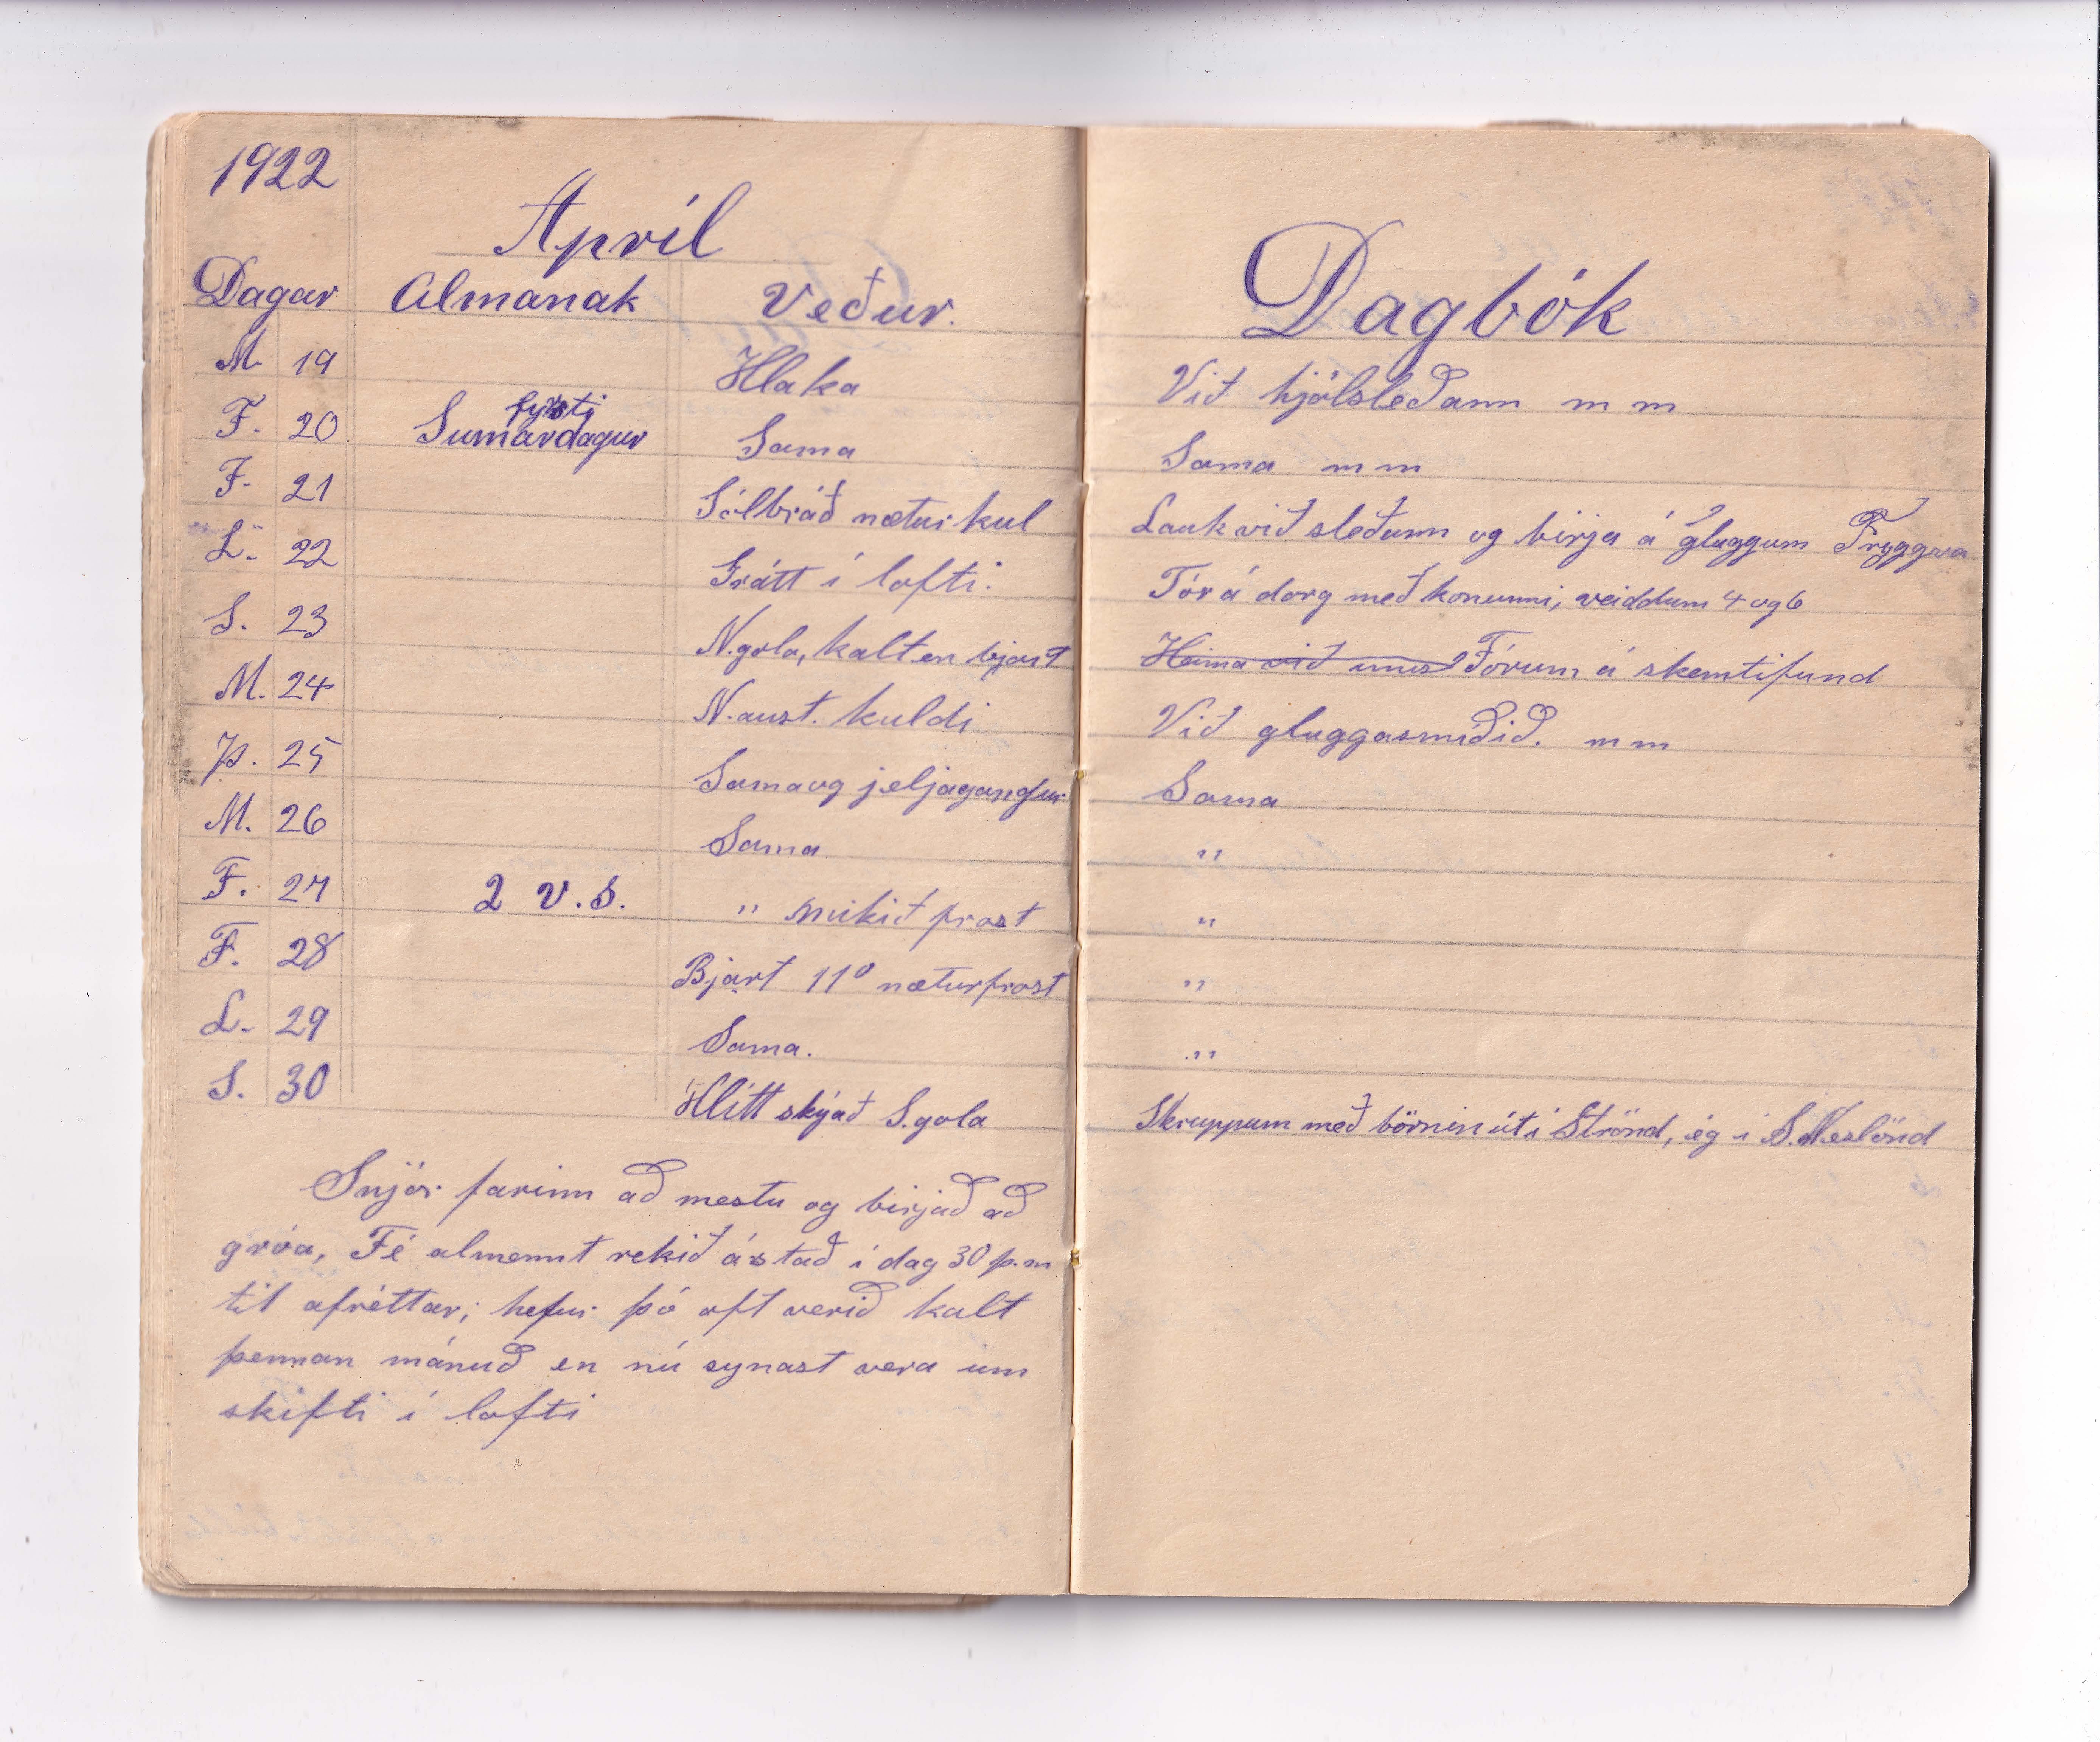 1922
Apríl
Dagar Almanak Veður.
M. 19 Hlaka
F. 20. Sumardagur fyrsti Sama
F. 21 Sólbráð næturkul
L. 22 Grátt í lofti.
S. 23 N.gola, kalt en bjart
M. 24 N.aust. kuldi
Þ. 25 Sama og jeljagangur
M. 26 Sama
F. 27 2 v.s. " mikið frost
F. 28 Bjart 11° næturfrost
L. 29 Sama.
S. 30 Hlítt skýað S.gola
Snjór farinn að mestu og birjað að
gróa, Fé almennt rekið ástað í dag 30 þ.m
til afréttar; hefur þó oft verið kalt
þennan mánuð en nú synast vera um
skifti í lofti
Dagbók
Við hjólsleðann m m
Sama m m
Lauk við sleðann og birja á gluggum Tryggva
Fór á dorg með konunni, veiddum 4 og 6
Heima við Fórum á skemtifund
Við gluggasmíðið. m m
Sama
"
"
"
"
Skruppum með börnin út í Strönd, ég í S.Neslönd